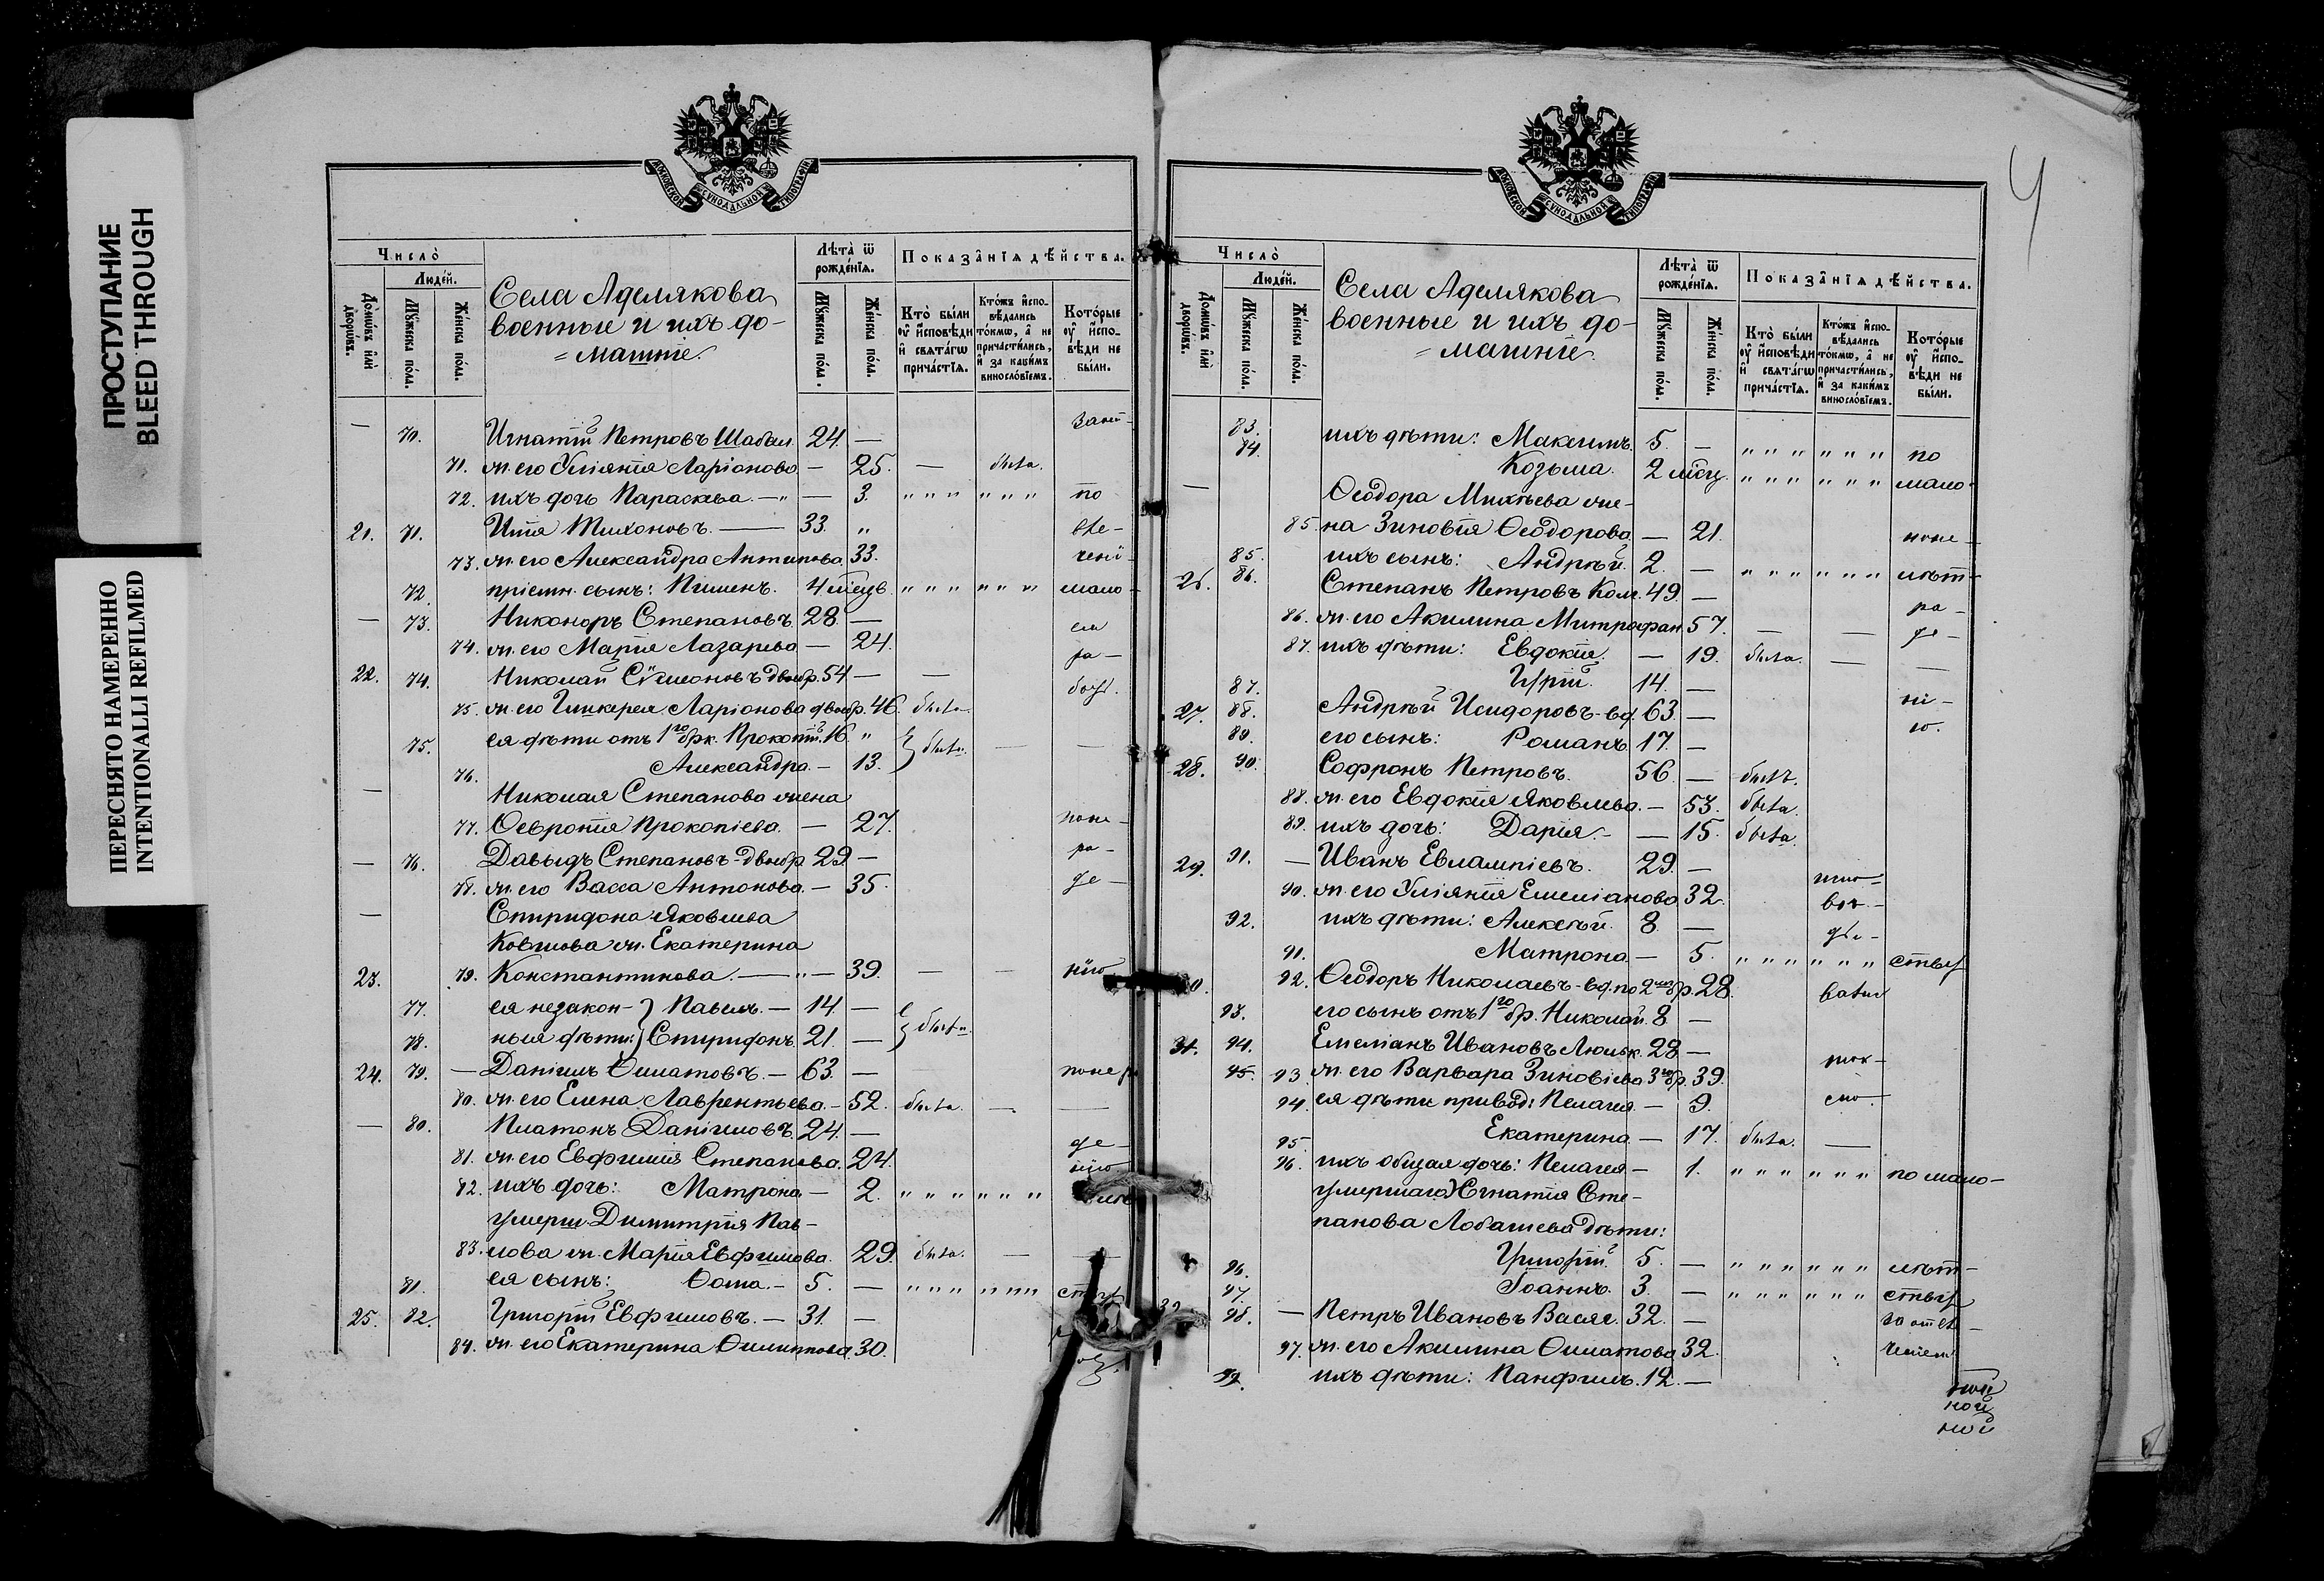 ПРОСТУПАНИЕ
BLEED THROUGH
ПЕРЕСНЯТО НАМЕРЕННО
INTENTIONALLI REFILMED
Число̀
Людей.
Домѡвъ или дворѡвъ.
Мꙋжеска пола.
Женска пола.
Села Аделякова
военные и ихъ до-
= машніе.
Лѣта̀ ѿ рождéнїѧ.
Мꙋжеска пола.
Женска пола.
Показанїѧ дѣйства.
Кто̀ были оу҆ и҆сповѣди и҆ свѧтагѡ причастїѧ.
Ктожъ и҆сповѣдались токмѡ, а҆ не причастились, и҆ за какимъ винословїемъ.
Которые оу҆ и҆сповѣди не были.
— 70. Игнатій Петровъ Шабал. 24. —
71. ж. его Уліянія Ларіонова — 25. — была.
72. ихъ дочь Параскева. — " — 3. " " " " " " по
21. 71. Илія Тихоновъ. — 33. "
73. ж. его Александра Антипова 33.
72. пріемн. сынъ: Пименъ. 4 " " " " " " мало-
— 73. Никаноръ Степановъ. 28. —
74. ж. его Марія Лазарева — 24.
22. 74. Николай Симоновъ двоебр. 54 — —
75. ж. его Гликерея Ларіонова двоебр. 46. была.
75. ея дѣти отъ 1го брк. Прокопій. 16. " } были. — —
76. Александра. — 13.
— Николая Степанова жена
77. Ѳевронія Прокопіева. — 27. поне-
— 76. Давыдъ Степановъ-двоебр. 29. — ра-
78. ж. его Васса Антонова. — 35. де-
— Спиридона Яковлева
Ковшова ж. Екатерина
23. 79. Константинова. — " — 39. — — нію
77. ея незакон- } Павелъ. — 14. —
78. ныя дѣти: } Спиридонъ 21. — } были.
24. 79. — Даніилъ Филатовъ. — 63. — поне
80. ж. его Елена Лаврентьева. — 52. была. — —
— 80. Платонъ Даніиловъ. 24. —
81. ж. его Евфимія Степанова. 24. де-
82. ихъ дочь: Матрона — 2. " " " " " "
умерш. Димитрія Пав-
83. лова ж. Марія Евфимова. 29. была. —
81. ея сынъ: Ѳома. — 5. — " " " " " " "
25. 82. Григорій Евфимовъ. — 31. —
84. ж. его Екатерина Филиппова 30.
4
Число̀
Людей.
Домѡвъ или дворѡвъ.
Мꙋжеска пола.
Женска пола.
Села Аделякова
военные и ихъ до-
= машніе.
Лѣта̀ ѿ рождéнїѧ.
Мꙋжеска пола.
Женска пола.
Показанїѧ дѣйства.
Кто̀ были оу҆ и҆сповѣди и҆ свѧтагѡ причастїѧ.
Ктожъ и҆сповѣдались токмѡ, а҆ не причастились, и҆ за какимъ винословїемъ.
Которые оу҆ и҆сповѣди не были.
83. ихъ дѣти: Максимъ. 5. — " " " " " " по
84. Козьма. 2 мѣсц. " " " " " " мало-
— Ѳеодора Михѣева же-
85. на Зиновія Ѳеодорова — 21. поне-
85. ихъ сынъ: Андрѣй. 2. — " " " " " " лѣт-
26. 86. Степанъ Петровъ Кол. 49. — ра-
86. ж. его Акилина Митрофан. 57. — — де-
87. ихъ дѣти: Евдокія. — 19. была. — —
87. Гурій. 14. —
27. 88. Андрѣй Исидоровъ-вд. 63. — ні-
89. его сынъ: Романъ 17. — ю.
28. 90. Софронъ Петровъ. 56. — былъ.
88. ж. его Евдокія Яковлева. — 53. была.
89. ихъ дочь: Дарія. — — 15. была.
29. 91. — Иванъ Евлампіевъ. 29. —
90. ж. его Уліянія Емеліанова 32.
92. ихъ дѣти: Алексѣй. 8. —
91. Матрона. — 5. " " " " " " ству
92. Ѳеодоръ Николаевъ-вд. по 2мъ бр. 28.
93. его сынъ отъ 1го бр. Николай. 8. —
31. 94. Емеліанъ Ивановъ Люльк. 28. — ток-
95. 93. ж. его Варвара Зиновіева 3мъ бр. 39.
94. ея дѣти привод: Пелагея. — 9.
95. Екатерина. — 17. была. —
96. ихъ общая дочь: Пелагея — 1. " " " " " " по мало-
умершаго Игнатія Сте-
панова Лобашева дѣти:
96. Григорій. 5. — " " " " " " лѣт-
97. Іоаннъ. 3. — " " " " " " ству
32. 98. — Петръ Ивановъ Васяг. 32. — за отлу-
97. ж. его Акилина Филатова 32. ченіем
99. ихъ дѣти: Панфилъ. 12. —